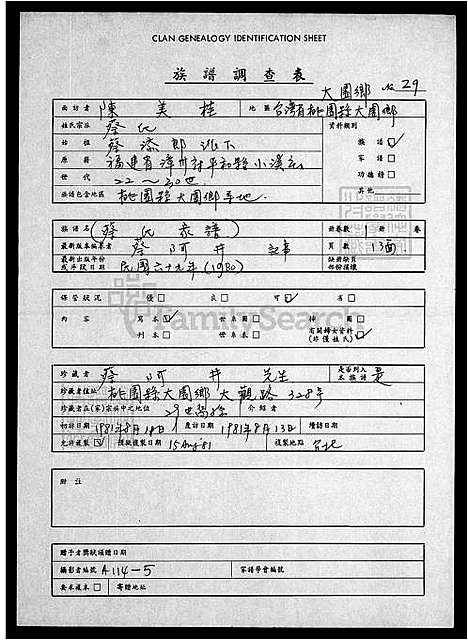 CLAN GENEALOGY IDENTIFICATION SHEET
族譜調查表
大園鄉 No 29
面訪者 陳美桂 地區 台灣省桃園縣大園鄉
姓氏宗派 蔡氏 資料類別
始祖 蔡添郎派下 族譜
原籍 福建省漳州府平和縣小溪 家譜
世代 22~30世 功德榜
族譜包含地區 桃園縣大園鄉等地. 其他
族譜名 (蔡氏家譜) 冊卷數 冊 卷
最新版本編纂者 蔡阿井 記事 頁數 13面
最新出版年份或手段日期 民國六十九年(1980) 缺冊缺頁部份損壞
保管狀況 優 良 可 劣
內容 寫本 世系圖 神圖
刊本 世系表 有關婦女資料(非僅姓氏)
FamilySearch
珍藏者 蔡阿井先生 是否列入本族譜 是
珍藏者住址 桃園縣大園鄉大觀路328號
珍藏者在(家)宗族中之地位 29世 介紹者
初訪日期 1981年8月14日 應訪日期 1981年8月13日 續訪日期
允許複製 預複製日期 15 Aug 81 複製地點 台北
附註
贈予者獎狀頒贈日期
攝影者編號 A114-5 家譜學會編號
要求複本 寄贈地址